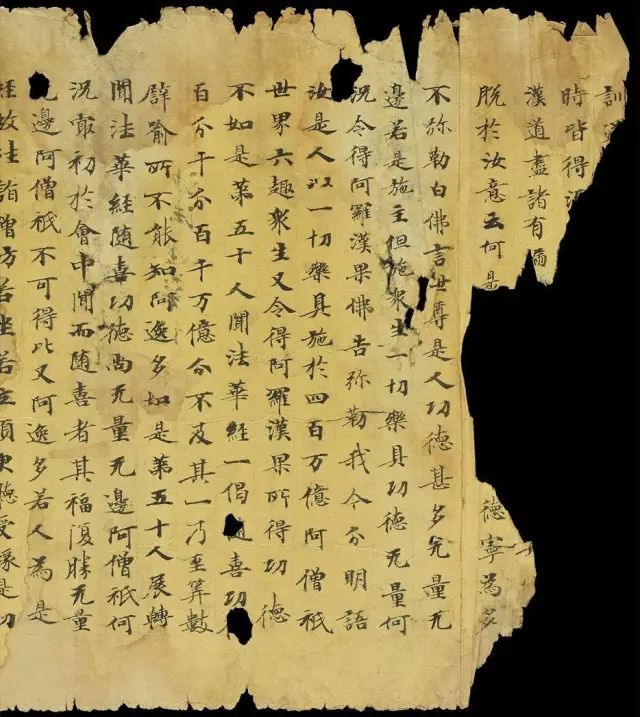 訓
時皆得
漢道盡諸有漏
脫於汝意云何是德寧為多
不弥勒白佛言世尊是人功德甚多无量无
邊若是施主但施衆生一切樂具功德无量何
况令得阿羅漢果佛告弥勒我今分明語
汝是人以一切樂具施於四百万億阿僧祇
世界六趣衆生又令得阿羅漢果所得功德
不如是第五十人聞法華經一偈随喜功
百分千分百千万億分不及其一乃至筭數
譬喻所不能知阿逸多如是第五十人展轉
聞法華經随喜功德尚无量无邊阿僧祇何
况冣初於會中聞而随喜者其福復勝无量
无邊阿僧祇不可得比又阿逸多若人為是
經故往詣僧坊若坐若立須臾聽受縁是功